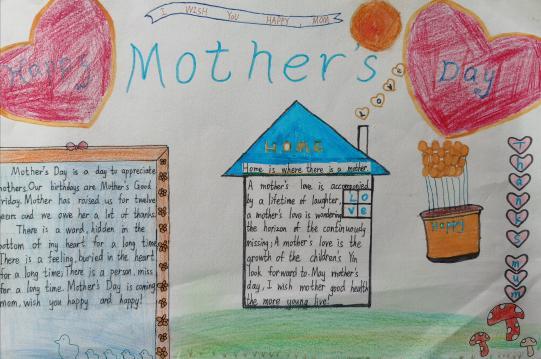 I WISH YOU HAPPY, MOM
Happy
Mother's
Day
LOVE
HOME
Home is where there is a mother.
Mother's Day is a day to appreciate
mothers. Our birthdays are Mother's Good
Friday. Mother has raised us for twelve
years and we owe her a lot of thanks.
There is a word, hidden in the
bottom of my heart for a long time,
There is a feeling, buried in the heart
for a long time; There is a person, miss
for a long time. Mother's Day is coming,
mom, wish you happy and happy!
A mother's love is accompanied
by a lifetime of laughter,
a mother's love is wandering
the horizon of the continuously
missing; A mother's love is the
growth of the children's Yn
look forward to. May mother's
day, I wish mother good health
the more young live!
LO
Ve
HAPPY
Thanks mum